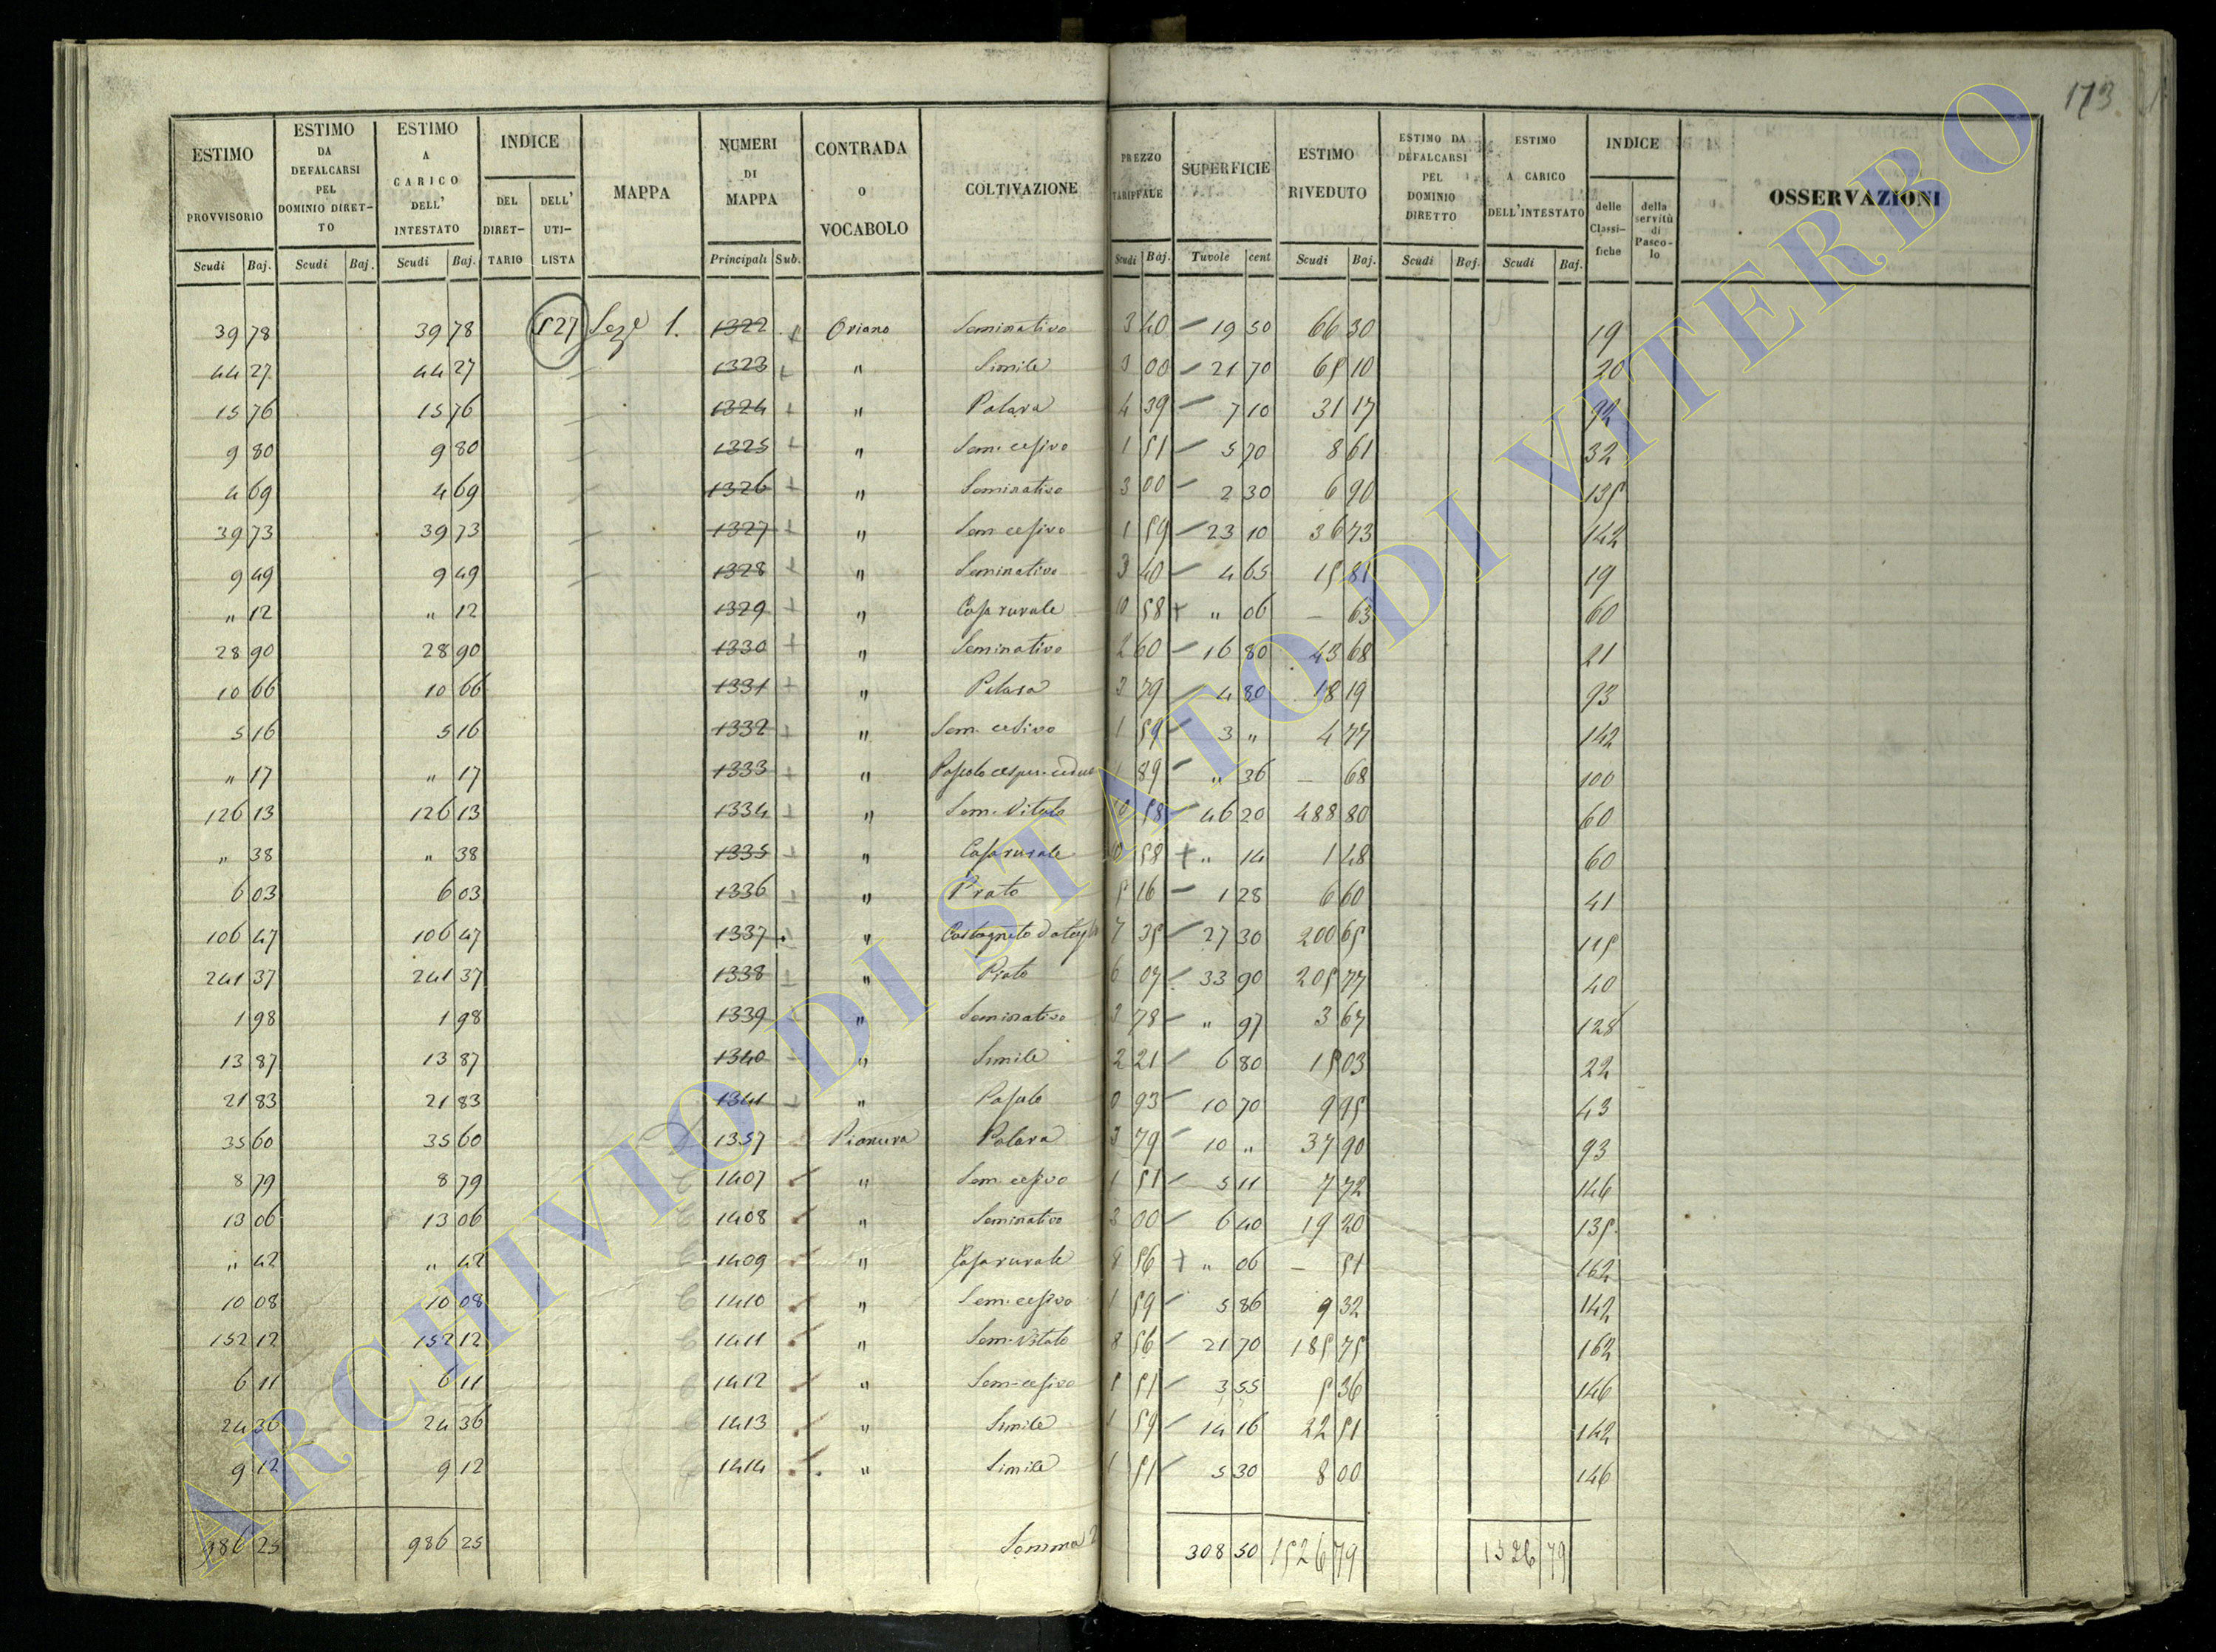 173
ESTIMO PROVVISORIO Scudi Baj. ESTIMO DA DEFALCARSI PEL DOMINIO DIRET-TO Scudi Baj. ESTIMO A CARICO DELL' INTESTATO Scudi Baj. INDICE DEL DIRET-TARIO DELL' UTI-LISTA MAPPA NUMERI DI MAPPA Principali Sub. CONTRADA O VOCABOLO COLTIVAZIONE PREZZO TARIFFALE Scudi Baj. SUPERFICIE Tavole cent ESTIMO RIVEDUTO Scudi Baj. ESTIMO DA DEFALCARSI PEL DOMINIO DIRETTO Scudi Baj. ESTIMO A CARICO DELL'INTESTATO Scudi Baj. INDICE delle Classi-fiche della servitù di Pasco-lo OSSERVAZIONI
39 78 39 78 527 Seze 1. 1322 Oriano Seminativo 3 40 19 50 66 30 19
44 27 44 27 1323 " Simile 3 00 21 70 65 10 20
15 76 15 76 1324 " Palara 4 39 7 10 31 17 92
9 80 9 80 1325 " Sem. cesivo 1 51 5 70 8 61 32
4 69 4 69 1326 " Seminativo 3 00 2 30 6 90 135
39 73 39 73 1327 " Sem cesivo 1 59 23 10 36 73 142
9 49 9 49 1328 " Seminativo 3 40 4 65 15 81 19
" 12 " 12 1329 " Casa rurale 10 58 + " 06 — 63 60
28 90 28 90 1330 " Seminativo 2 60 16 80 43 68 21
10 66 10 66 1331 " Palara 3 79 4 80 18 19 93
5 16 5 16 1332 " Sem. cesivo 1 59 3 " 4 77 142
" 17 " 17 1333 " Pascolo cespu. ceduo 1 89 " 36 — 68 100
126 13 126 13 1334 " Sem. Vitato 10 58 46 20 488 80 60
" 38 " 38 1335 " Casa rurale 10 58 + " 14 1 48 60
6 03 6 03 1336 " Prato 5 16 1 28 6 60 41
106 47 106 47 1337 " Castagneto da 7 35 27 30 200 65 115
241 37 241 37 1338 " Prato 6 07 33 90 205 77 40
1 98 1 98 1339 " Seminativo 3 78 " 97 3 67 128
13 87 13 87 1340 " Simile 2 21 6 80 15 03 22
21 83 21 83 1341 " Pascolo 0 93 10 70 9 95 43
35 60 35 60 1357 Pianura Palara 3 79 10 " 37 90 93
8 79 8 79 1407 " Sem cesivo 1 51 5 11 7 72 146
13 06 13 06 1408 " Seminativo 3 00 6 40 19 20 135
" 42 " 42 1409 " Casa rurale 8 56 + " 06 — 51 162
10 08 10 08 1410 " Sem. cesivo 1 59 5 86 9 32 142
152 12 152 12 1411 " Sem. Vitato 8 56 21 70 185 75 162
6 11 6 11 1412 " Sem-cesivo 1 51 3 55 5 36 146
24 36 24 36 1413 " Simile 1 59 14 16 22 51 142
9 12 9 12 1414 " Simile 1 51 5 30 8 00 146
986 25 986 25 Somma 308 50 1526 79 1526 79
ARCHIVIO DI STATO DI VITERBO